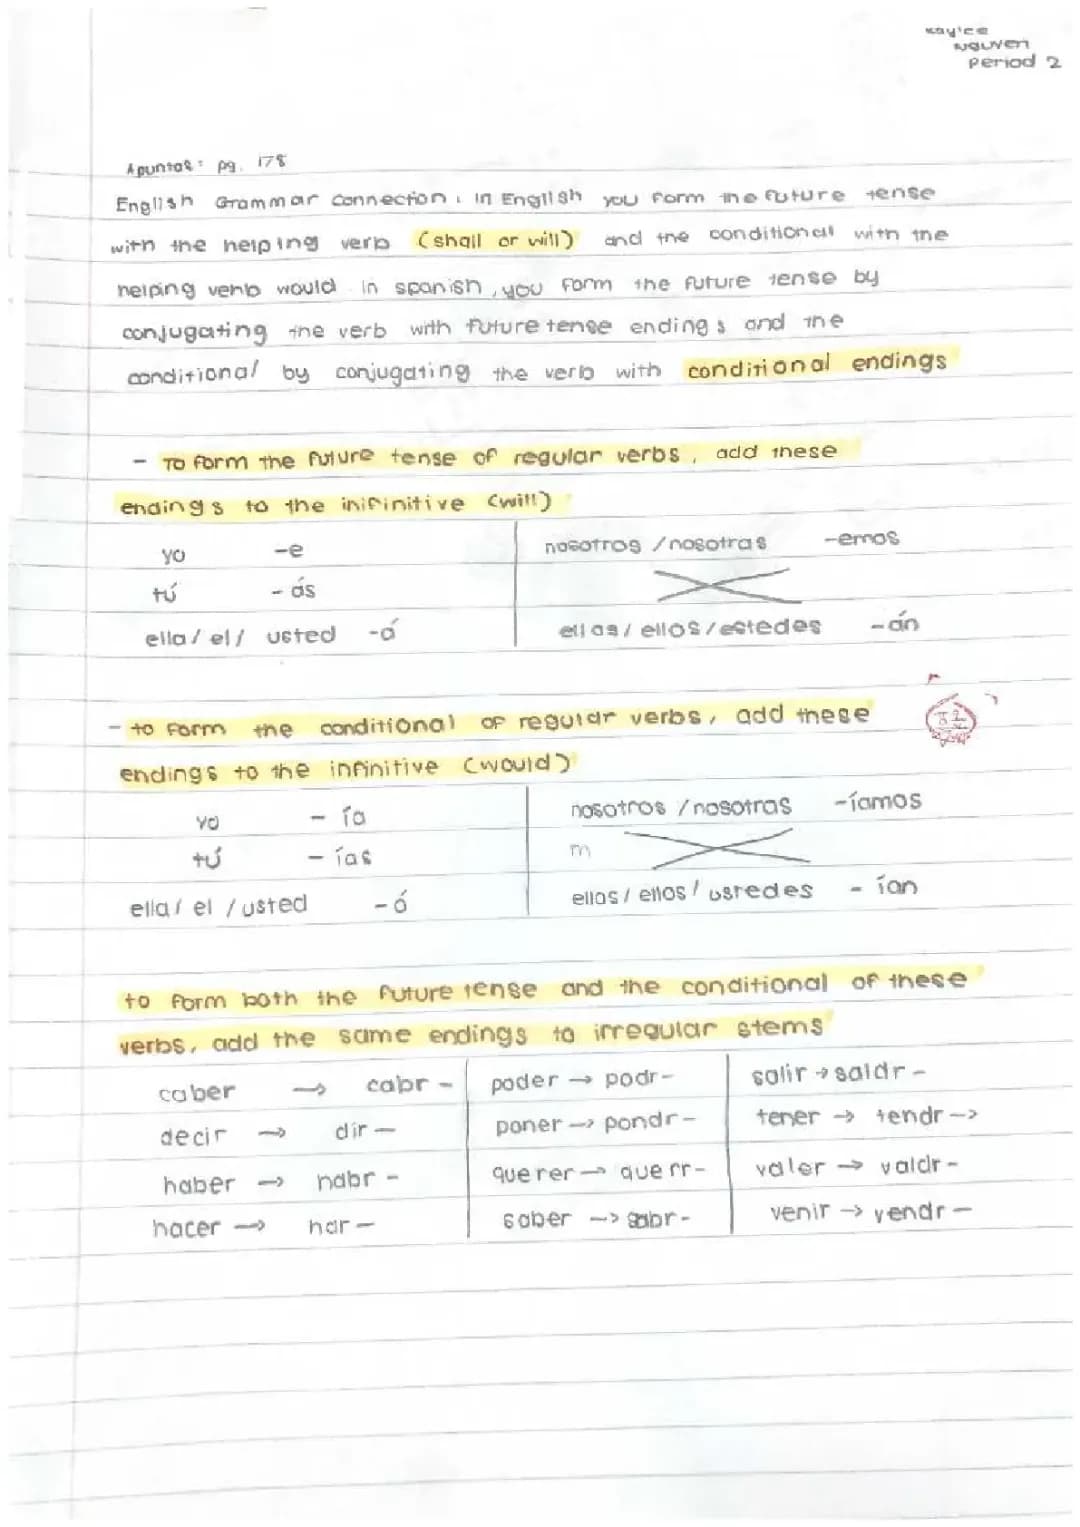 Kaylee
Nguyen
Period 2
Apuntas: pg. 178
English Grammar Connection: In English you form the future tense
with the helping verb (shall or will) and the conditional with the
helping verb would. In spanish, you form the future tense by
conjugating the verb with future tense endings and the
conditional by conjugating the verb with conditional endings
- To form the future tense of regular verbs, add these
endings to the inifinitive (will)
yo -e nosotros /nosotras -emos
tú - ás
ella/ el/ usted -á ellas/ ellos/estedes -án
- to form the conditional of regular verbs, add these
endings to the infinitive (would)
yo - ía nosotros /nosotras -íamos
tú - ías m
ella/ el /usted -ó ellas/ ellos/ ustedes - ían
to form both the future tense and the conditional of these
verbs, add the same endings to irregular stems
caber → cabr - poder → podr- salir → saldr -
decir → dir - poner → pondr- tener → tendr ->
haber → habr - querer → querr- valer → valdr -
hacer → har - saber -> sabr- venir → vendr -